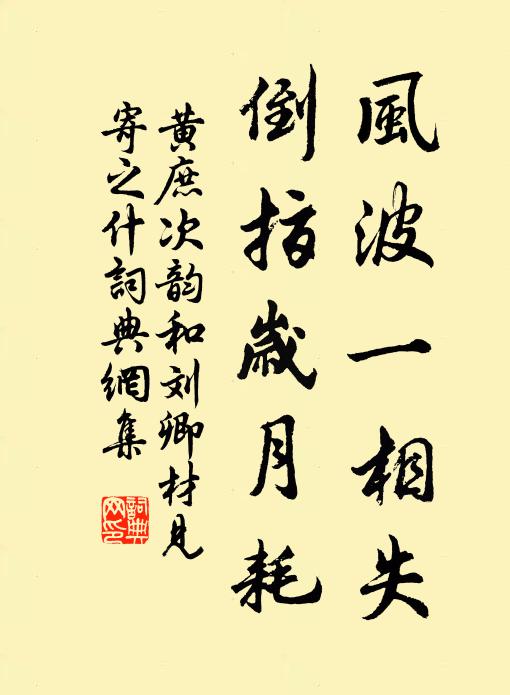 風波一相失
倒指歲月耗
黄庶次韵和刘卿材見
寄之什詞典網集
詞典網印